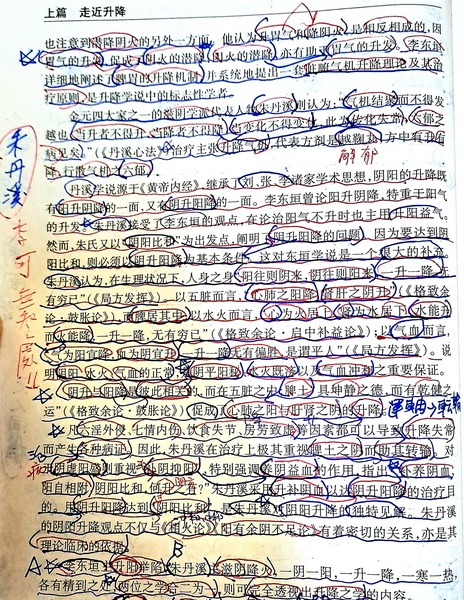 上篇 走近升降
也注意到潜降阴火的另外一方面。他认为升胃气和降阴火是相反相成的,因
胃气的升发,促成了阴火的潜降,阴火的潜降,亦有助于胃气的升发。李东垣
详细地阐述了脾胃的升降机制,并系统地提出一套脏腑气机升降理论及其治
疗原则,是升降学说中的标志性学者。
金元四大家之一的滋阴学派代表人物朱丹溪则认为:“气机结聚而不得发
越也,当升者不得升,当降者不得降,当变化不得变化,此为传化失常,六郁之
病见矣。”(《丹溪心法》)治疗主张升降气机,代表方剂是越鞠丸,方中有升有
降,行散气机之六郁。
丹溪学说源于《黄帝内经》,继承了刘、张、李诸家学术思想,阴阳的升降既
有阳升阴降的一面,又有阴升阳降的一面。李东垣曾论阳升阴降,特重于阳气
的升发。朱丹溪接受了李东垣的观点,在论治阳气不升时也主用升阳益气。
然而,朱氏又以“阴阳比和”为出发点,阐明了阴升阳降的问题。因为要达到阴
阳比和,则必须以阴升阳降为基本条件。这对东垣学说是一个很大的补充。
朱丹溪认为,在生理状况下,人身之身“阳往则阴来,阴往则阳来,一升一降,无
有穷已”(《局方发挥》)。以五脏而言,“心肺之阳降,肾肝之阴升”(《格致余
论·鼓胀论》),而脾居其中;以水火而言,“心为火居上,肾为水居下,水能升
而火能降,一升一降,无有穷已”(《格致余论·房中补益论》);以气血而言,
“气为阳宜降,血为阴宜升,一升一降,无有偏胜,是谓平人”(《局方发挥》)。说
明阴阳、水火、气血的正常升降,阴平阳秘、水火既济以及气血冲和之重要保证。
阴升与阳降是彼此相关的,而在五脏之中,脾土“具坤静之德,而有乾健之
运”(《格致余论·鼓胀论》),促成了心肺之阳与肝肾之阴的升降。
凡六淫外侵、七情内伤、饮食失节、房劳致虚等因素都可以导致升降失常
而产生各种病证。因此,朱丹溪在治疗上极其重视脾土之阴而助其转输。对
于阴虚阳盛则重视补阴抑阳,特别强调养阴益血的作用,指出“补养阴血,
阳自相附,阴阳比和,何升之有?”朱丹溪采用升补阴血以达阴升阳降的治疗目
的。用阴升阳降达到“阴阳比和”,是朱丹溪对阴阳升降的独特见解。朱丹溪
的阴阳升降观点不仅与《相火论》、《阳有余阴不足论》有着密切的关系,亦是其
理论临床的依据。
李东垣主升阳举陷,朱丹溪主滋阴降火,一阴一阳,一升一降,一寒一热,
各有精到之处,两位之学合二为一,则可完全透视出升降之学的内容。
朱丹溪